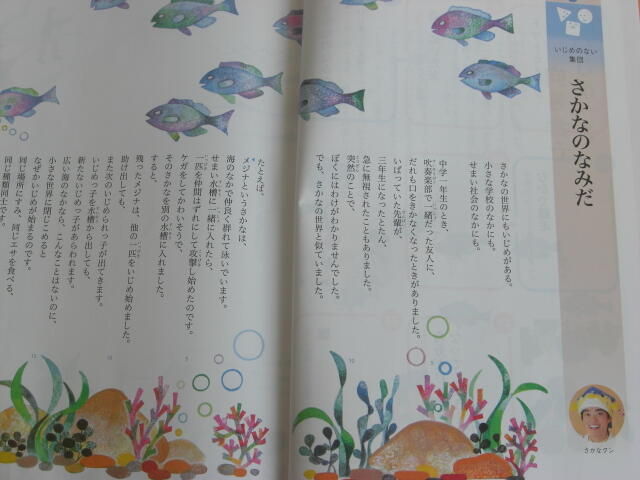 いじめのない
集団
さかなのなみだ
さかなクン
さかなの世界にもいじめがある。
小さな学校のなかにも。
せまい社会のなかにも。
中学一年生のとき、
吹奏楽部で一緒だった友人に、
だれも口をきかなくなったときがありました。
いばっていた先輩が、
三年生になったとたん、
急に無視されたこともありました。
突然のことで、
ぼくにはわけがわかりませんでした。
でも、さかなの世界と似ていました。
たとえば、
メジナというさかなは、
海のなかで仲良く群れて泳いでいます。
せまい水槽に一緒に入れたら、
一匹を仲間はずれにして攻撃し始めたのです。
ケガをしてかわいそうで、
そのさかなを別の水槽に入れました。
すると、
残ったメジナは、他の一匹をいじめ始めました。
助け出しても、
また次のいじめられっ子が出てきます。
いじめっ子を水槽から出しても、
新たないじめっ子があらわれます。
広い海のなかなら、こんなことはないのに、
小さな世界に閉じこめると
なぜかいじめが始まるのです。
同じ場所にすみ、同じエサを食べる、
同じ種類同士です。